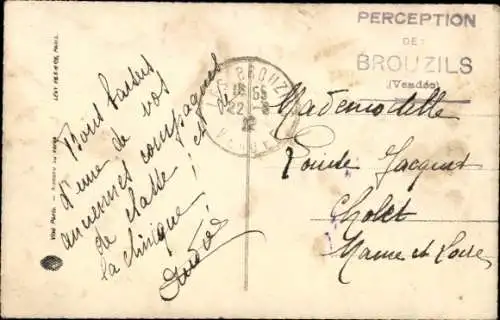 PERCEPTION
DE
BROUZILS
(Vendée)
LES BROUZILS
18 55
22 -8
32
VENDEE
Bons baisers
d'une de vos
anciennes compagnes
de classe, et de
la clinique!
Mademoiselle
Jacquet
Cholet
Maine et Loire
LEVY FILS & CIE, PARIS.
Visé Paris.